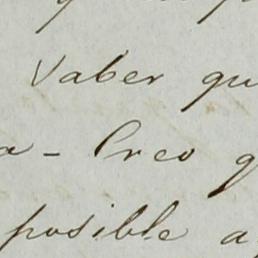 Vaber qu
a - Creo q
posible a